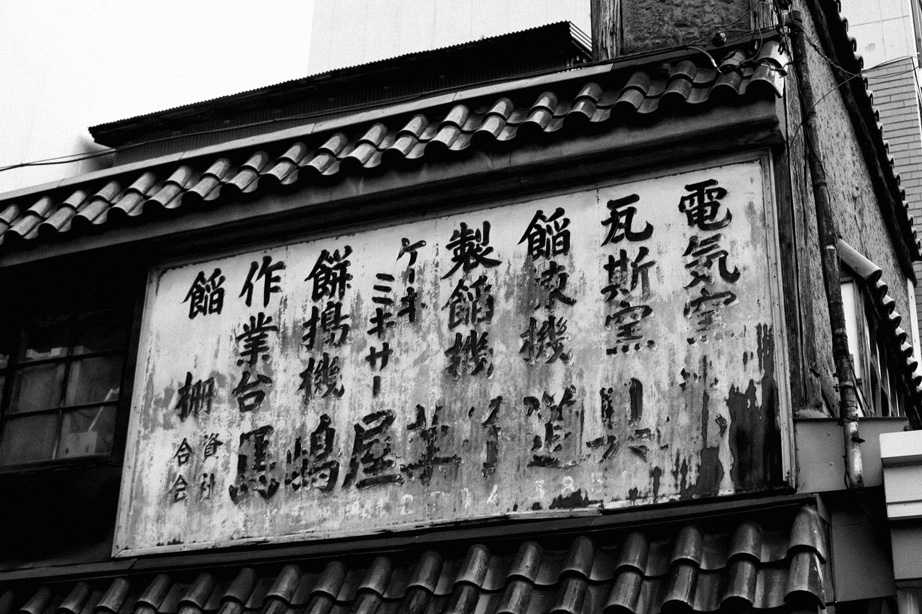 電気窯
瓦斯窯
餡煉機
製餡機
ケーキ
ミキサー
餅搗機
作業台
餡棚
合資
会社
馬嶋屋菓子道具